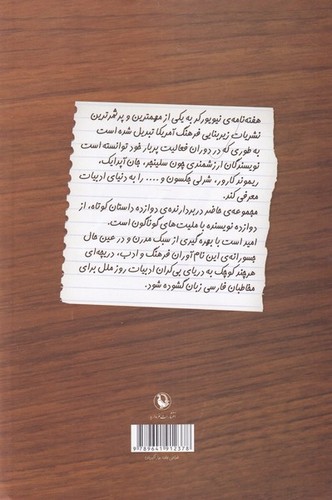 هفته‌نامه‌ی نیویورکر به یکی از مهمترین و پرثمرترین
نشریات زیربنایی فرهنگ آمریکا تبدیل شده است
به طوری که در دوران فعالیت پربار خود توانسته است
نویسندگان ارزشمندی چون سلینجر، جان آپدایک،
ریموند کارور، شرلی جکسون و .... را به دنیای ادبیات
معرفی کند.
مجموعه‌ی حاضر دربردارنده‌ی دوازده داستان کوتاه، از
دوازده نویسنده با ملیت‌های گوناگون است.
امید است با بهره گیری از سبک مدرن و در عین حال
جسورانه‌ی این نام آوران فرهنگ و ادب، دریچه‌ای
هرچند کوچک به دریای بی‌کران ادبیات روز ملل برای
مخاطبان فارسی زبان گشوده شود.
انتشارات مروارید
9789641912378